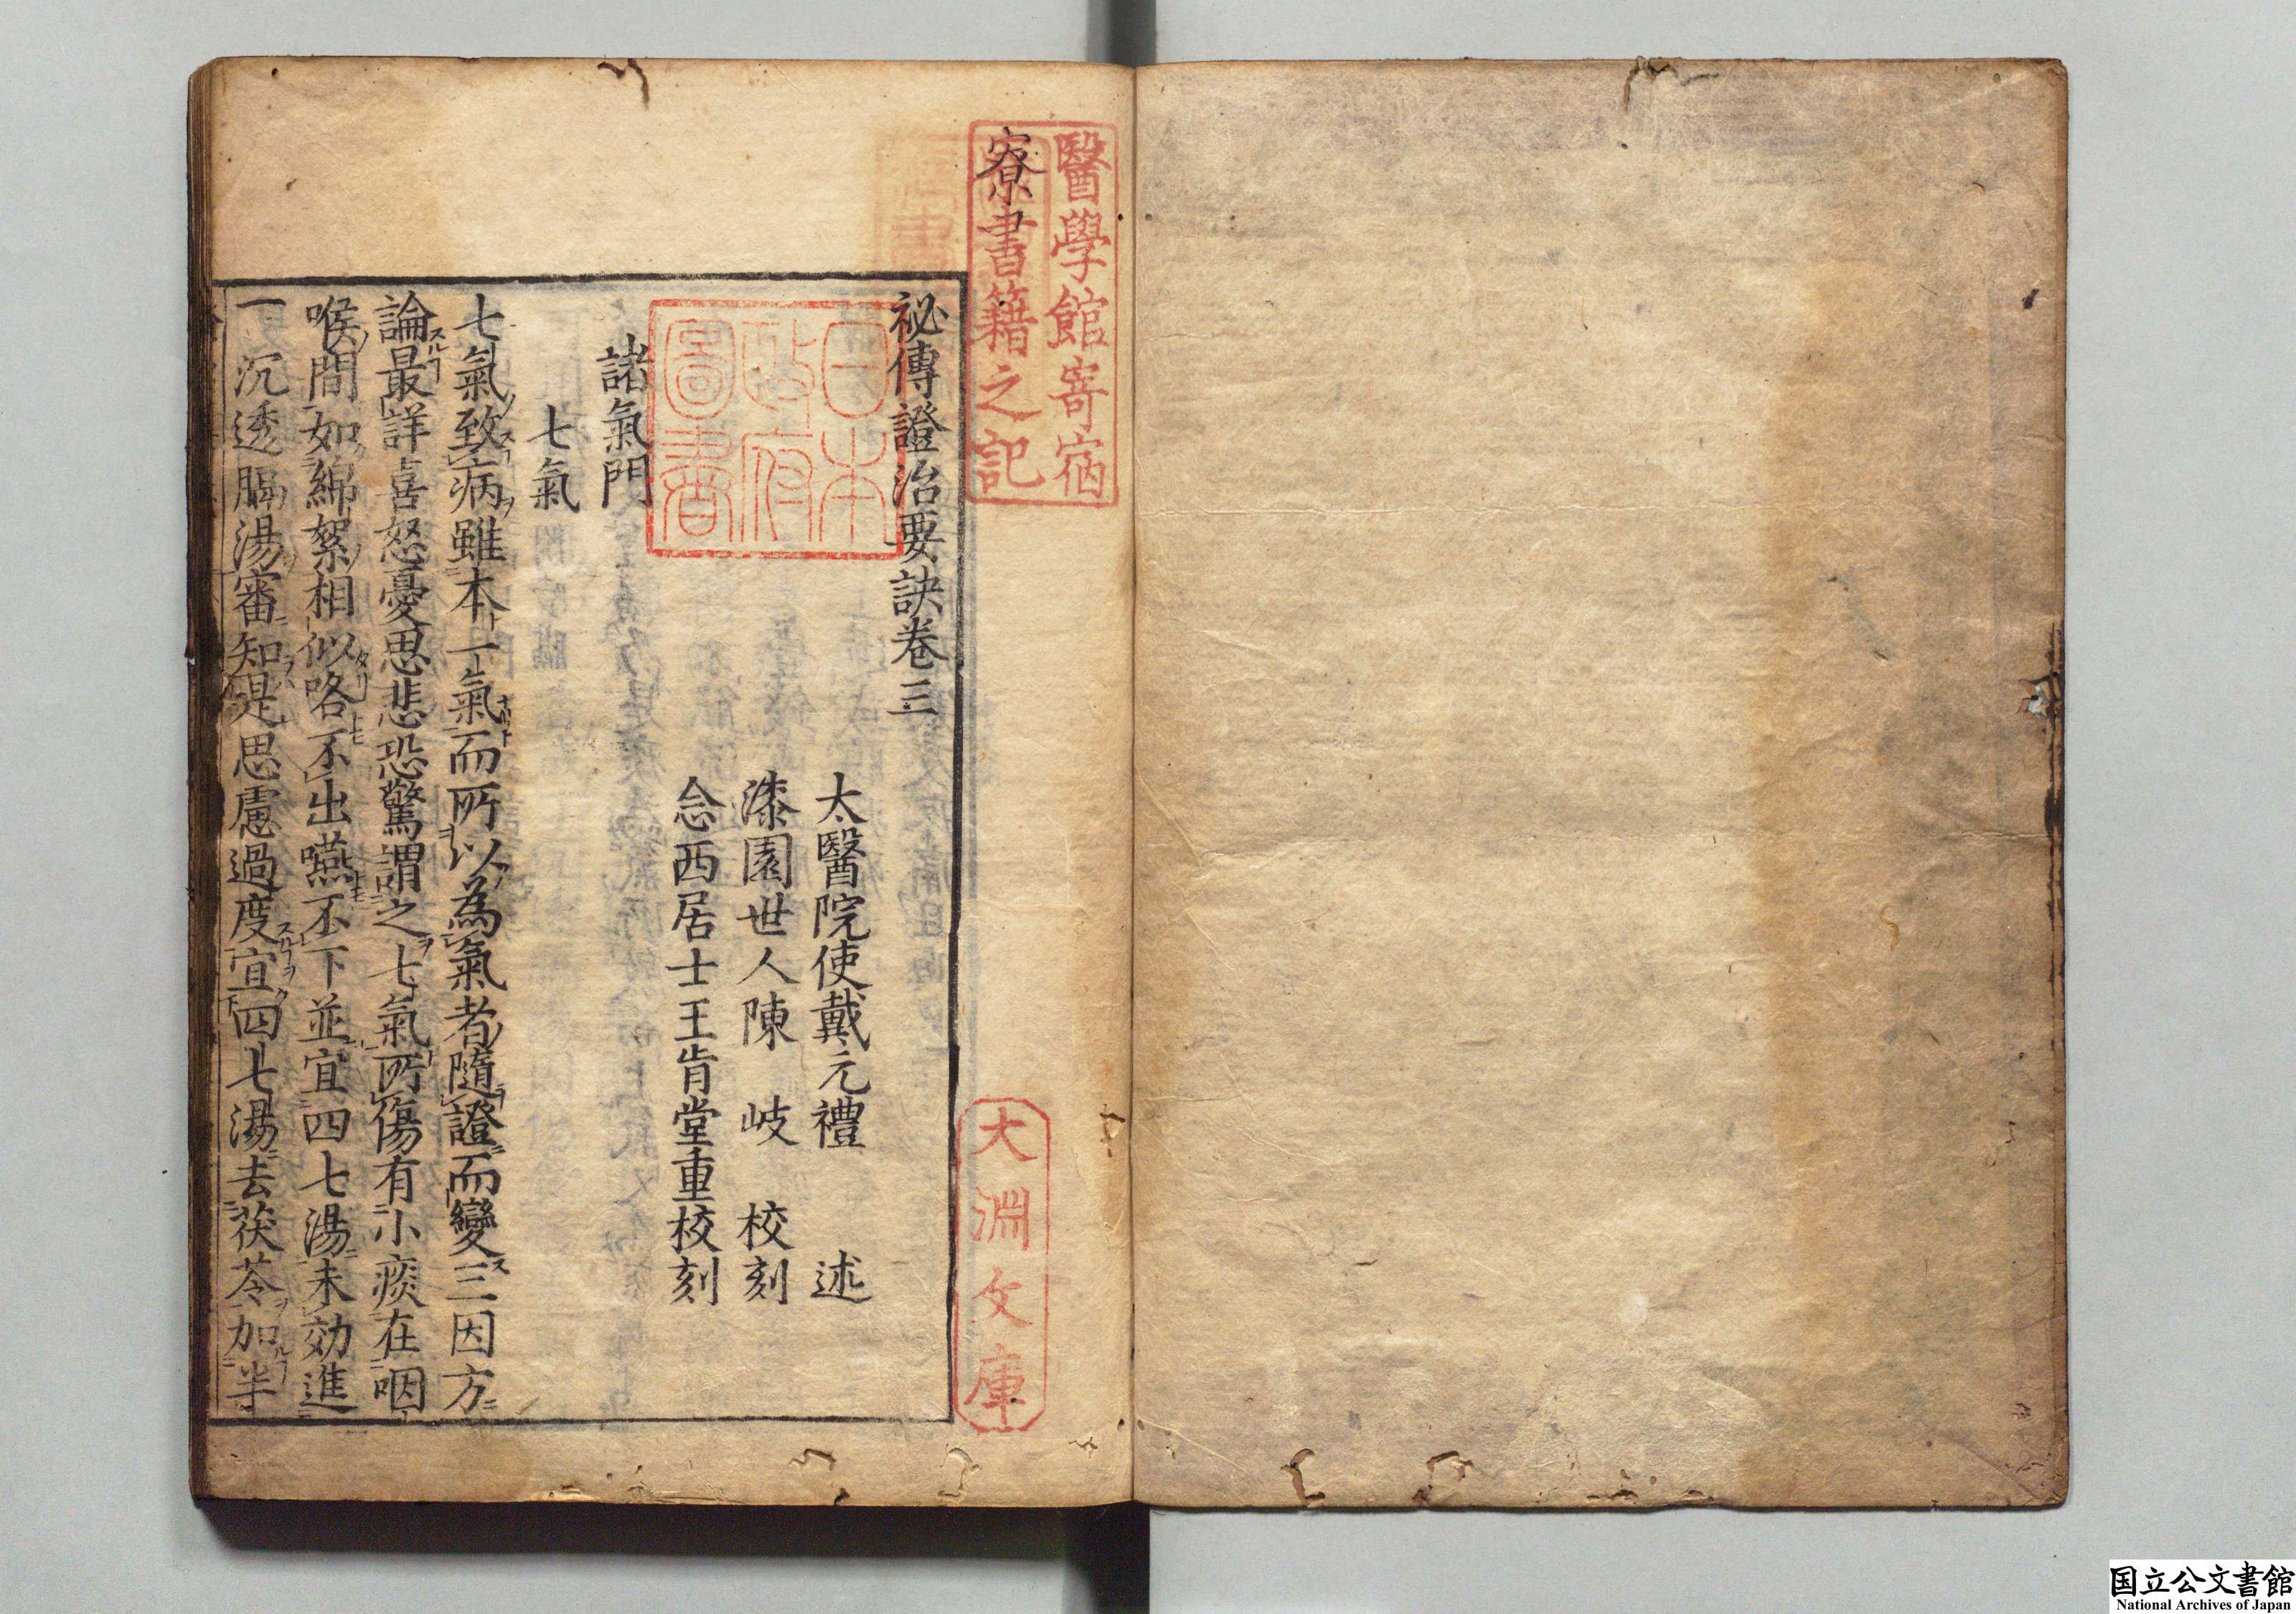 醫學館寄宿
寮書籍之記
大淵文庫
日本
政府
圖書
祕傳證治要訣卷三
太醫院使戴元禮 述
漆園世人陳 岐 校刻
念西居士王肯堂重校刻
諸氣門
七氣
七氣致病雖本一氣而所以為氣者隨證而變三因方
論最詳喜怒憂思悲恐驚謂之七氣所傷有小痰在咽
喉間如綿絮相似咯不出嚥不下並宜四七湯未効進
一 沉透膈湯審知是思慮過度宜四七湯去茯苓加半
国立公文書館
National Archives of Japan